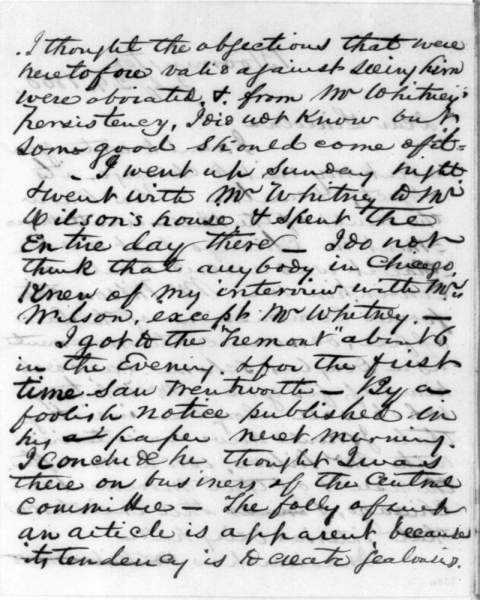 I thought the objections that were
heretofore valid against seeing him
were obviated, &. from Mr Whitney's
persistency, I did not know but
some good should come of it =
- I went up Sunday night
& went with Mr Whitney to Mr
Wilson's house & spent the
Entire day there - I do not
think that anybody in Chicago,
Knew of my interview with Mr.
Wilson, except Mr Whitney. -
I got to the "Tremont" about 6
in the Evening. & for the first
time saw Wentworth - By a
foolish notice published in
his paper next morning.
I conclude he thought I was
there on business of the Central
Committee - The folly of such
an article is apparent because
its tendency is to create jealousies.